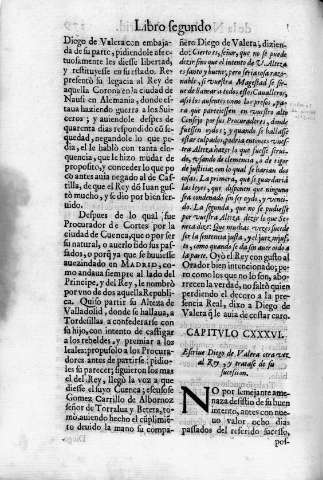 Libro segundo
Diego de Valera con embaja-
da de su parte, pidiendole afec-
tuosamente les diesse libertad,
y restituyesse en su estado. Re-
presentò su legacia al Rey de
aquella Corona en la ciudad de
en Alemania, donde es-
taua haziendo guerra a los
y auiendole despues de
quarenta dias respondido cõ se-
quedad, negandole lo que pe-
dia, el le habló con tanta elo-
quencia, que le hizo mudar de
proposito, y conceder lo que po
co antes auia negado al de Cas-
tilla, de que el Rey dõ Iuan gus-
tò mucho, y se dio por bien ser-
uido.
Despues de lo qual, fue
Procurador de Cortes por la
ciudad de Cuenca, que o por ser
su natural, o auerlo sido sus pas-
sados, o porq̃ ya se huuiesse
auezindado en MADRID, co-
mo andaua siempre al lado del
Principe, y del Rey, le nombrò
por vno de dos aquella Republi-
ca. Quiso partir su Alteza de
Valladolid, donde se hallaua, a
Tordesillas a confederarse con
su hijo, con intento de castigar
a los rebeldes, y premiar a los
leales; propusolo a los Procura-
dores antes de partirse; pidio-
les su parecer; siguieron los mas
el del Rey, llegò la voz a que
diesse el suyo Cuenca; escusose
Gomez Carrillo de Albornoz
señor de Torralua y Beteta, to-
mò auiendo hecho el cũplimiẽ-
to deuido la mano su compa-
ñero Diego de Valera, dizien-
do: Cierto es, Señor, que no se puede
dezir sino que el intento de V. Alteza
es santo y bueno, pero seria cosa razo-
nable, si vuestra Magestad se sir-
ue de llamar a todos estos Caualleros,
assi los ausentes como los presos, pa-
ra que pareciessen en vuestro alto
Consejo por sus Procuradores, donde
fuessen oydos; y quando se hallasse
estar culpados, podra entonces vues-
tra Alteza hazer lo que fuesse serui-
do, vsando de clemencia, o de rigor
de justicia; con lo qual se harian dos
cosas. La primera, que se guardaria
las leyes, que disponen que ninguno
sea condenado sin ser oydo, y venci-
do. La segunda, que no se pudiesse
por vuestra Alteza dezir lo que Se-
neca dize: Que muchas vezes sucede
ser la sentencia justa, y el juez injus-
to, como quando se da sin auer oido a
la parte. Oyò el Rey con gusto al
Orador bien intencionado; pe-
ro como los que no lo son, abor-
recen la verdad, no saltò quien
perdiendo el decoro a la pre-
sencia Real, dixo a Diego de
Valera q̃ le auia de costar caro.
CAPITVLO CXXXVI.
Escriue Diego de Valera otra vez
al Rey, y tratase de su
sucesion.
NO por semejante ame-
naza desistio de su buen
intento, antes con nue-
uo valor ocho dias
passados del referido sucesso,
pos-